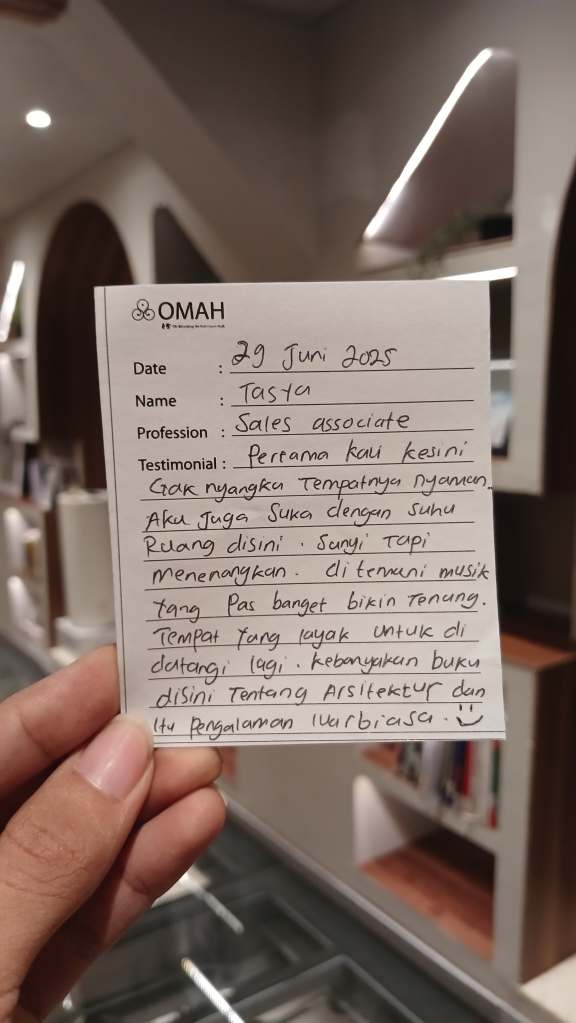 OMAH
Date : 29 Juni 2025
Name : Tasya
Profession : Sales associate
Testimonial : Pertama kali kesini
Gak nyangka Tempatnya nyaman.
Aku Juga Suka dengan Suhu
Ruang disini . Sunyi Tapi
menenangkan. di temani musik
Yang Pas banget bikin Tenang.
Tempat Yang layak untuk di
datangi lagi . kebanyakan buku
disini Tentang Arsitektur dan
Itu Pengalaman luarbiasa .